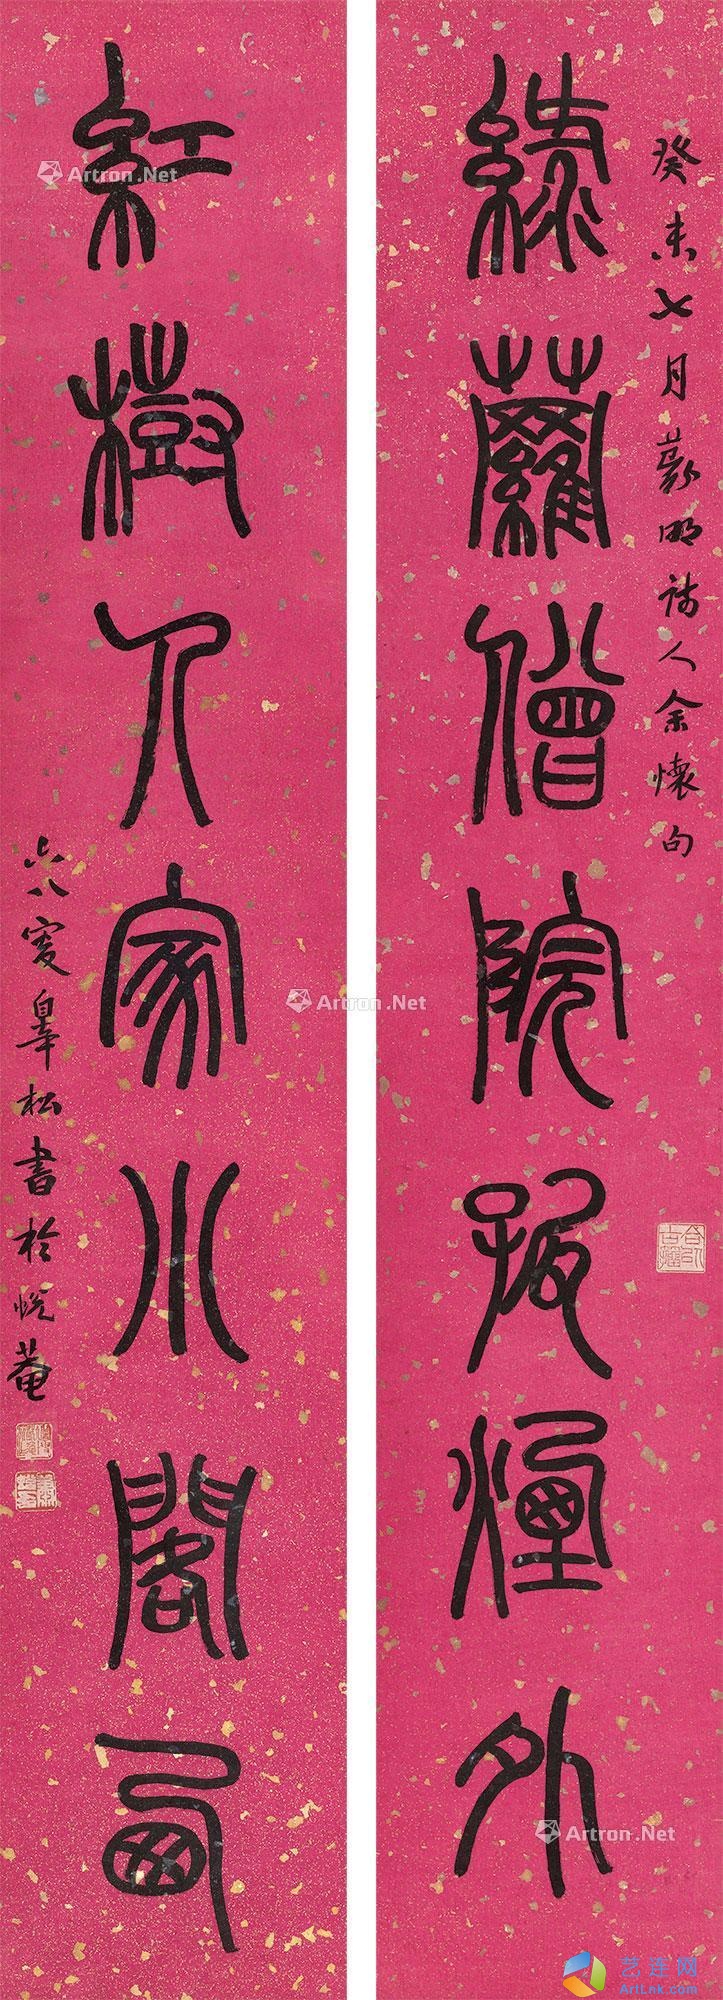 癸未七月篆明詩人余懷句
綠蘿僧院孤煙外
紅樹人家小閣西
六八叟皋松書於悅菴
Artron.Net
Artron.Net
Artron.Net
Artron.Net
艺连网
ArtLnk.com